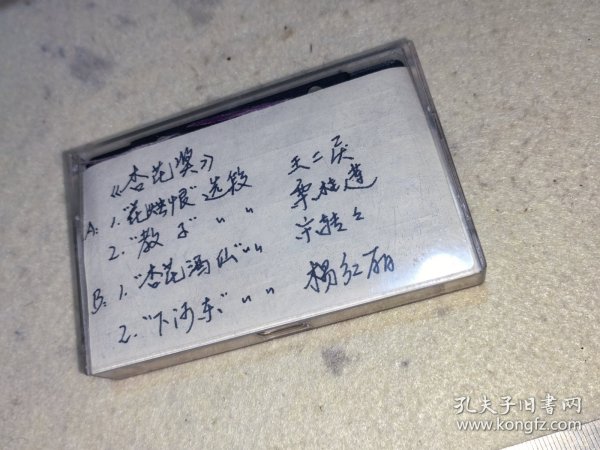 《杏花奖》
A: 1."花烛恨"选段 王二庆
2."教子" 〃 〃
B: 1."杏花酒仙" 〃 〃 宋转转
2."下河东" 〃 〃 杨红丽
孔夫子旧书网
www.kongfz.com